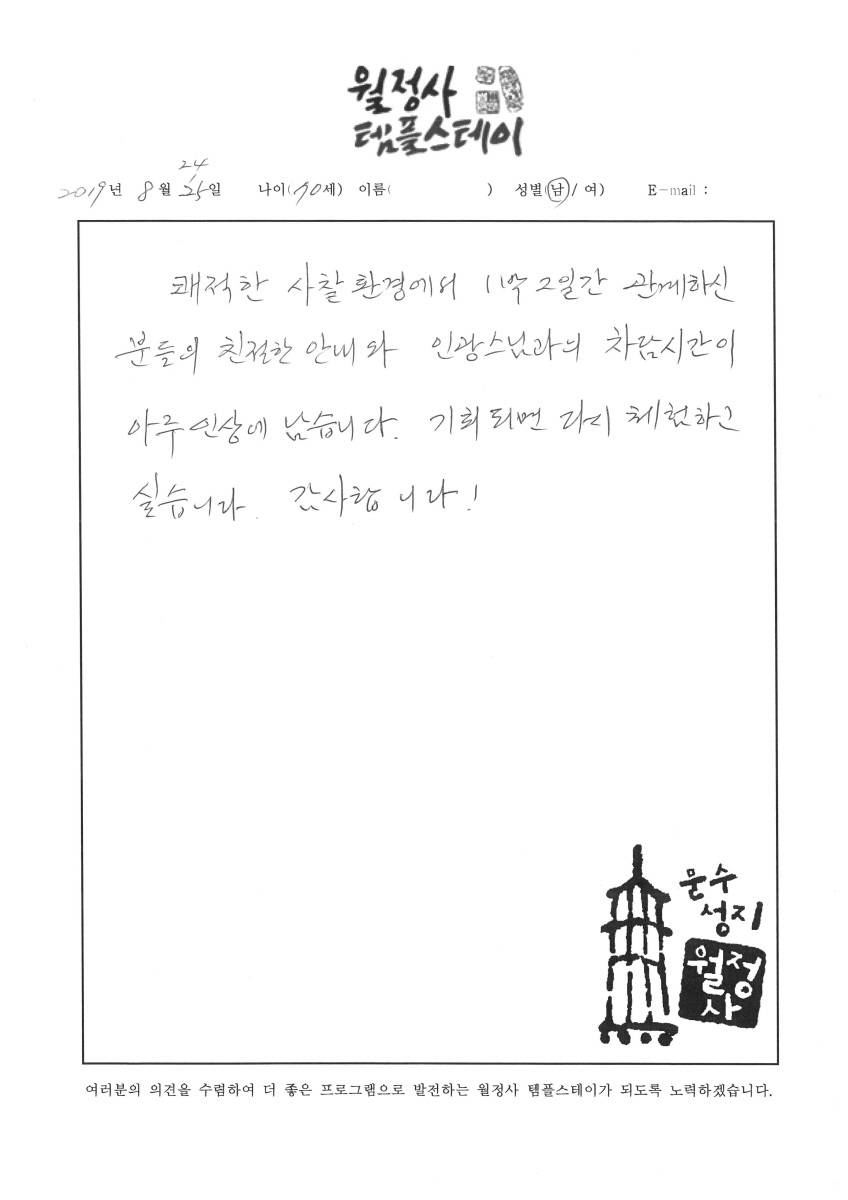 월정사
템플스테이
24
2019년 8월 25일 나이(70세) 이름( ) 성별(남/여) E-mail :
쾌적한 사찰환경에서 1박2일간 관계하신
분들의 친절한 안내와 인광스님과의 차담시간이
아주 인상에 남습니다. 기회되면 다시 체험하고
싶습니다. 감사합니다!
문수
성지
월정
사
여러분의 의견을 수렴하여 더 좋은 프로그램으로 발전하는 월정사 템플스테이가 되도록 노력하겠습니다.